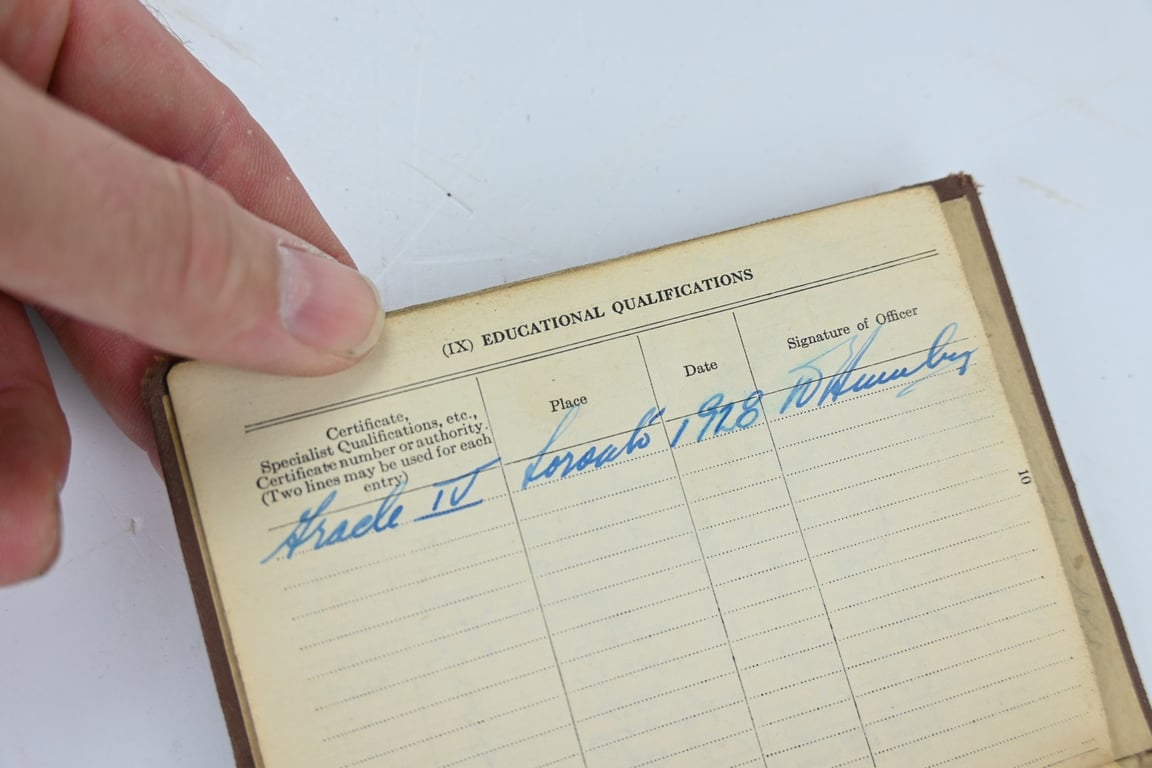 (IX) EDUCATIONAL QUALIFICATIONS
Certificate,
Specialist Qualifications, etc.,
Certificate number or authority.
(Two lines may be used for each
entry)
Place
Date
Signature of Officer
Grade IV
Toronto
1928
10